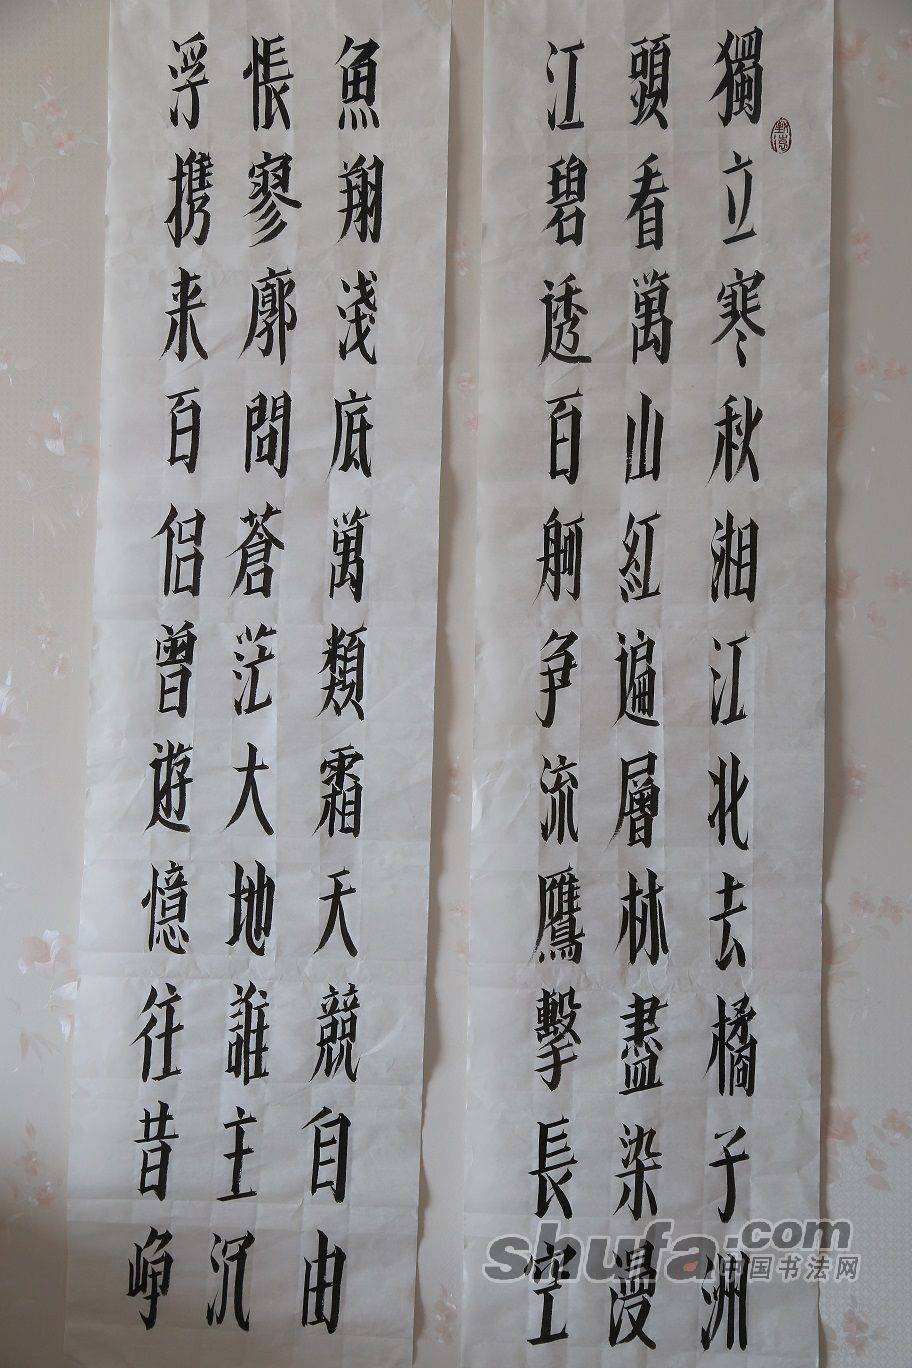 獨立寒秋湘江北去橘子洲
頭看萬山紅遍層林盡染漫
江碧透百舸争流鷹擊長空
魚翔淺底萬類霜天競自由
悵寥廓問蒼茫大地誰主沉
浮携来百侣曾遊憶往昔峥
shufa.com
中国书法网